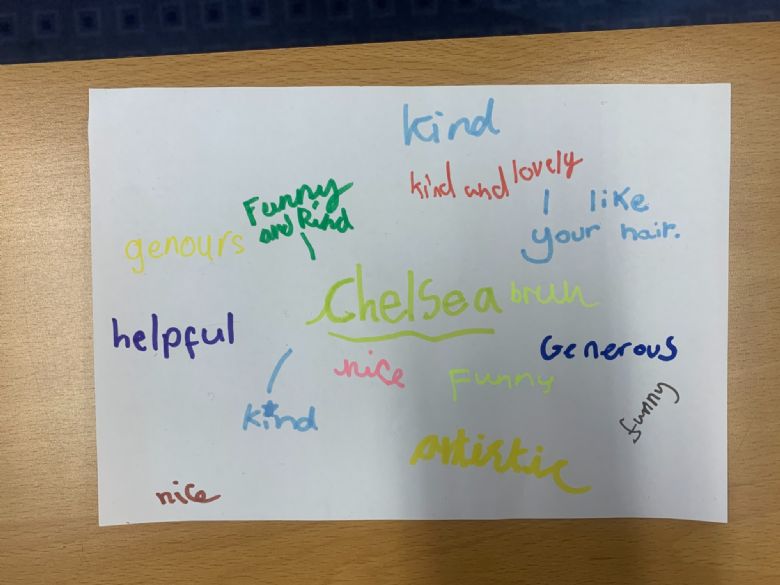 kind
kind and lovely
Funny
and Kind
I like
your hair.
genours
Chelsea
helpful
Generous
nice
Funny
funny
kind
artistic
nice